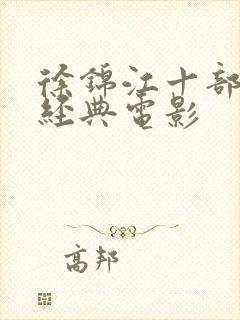 徐錦江十部
經典電影
高邦